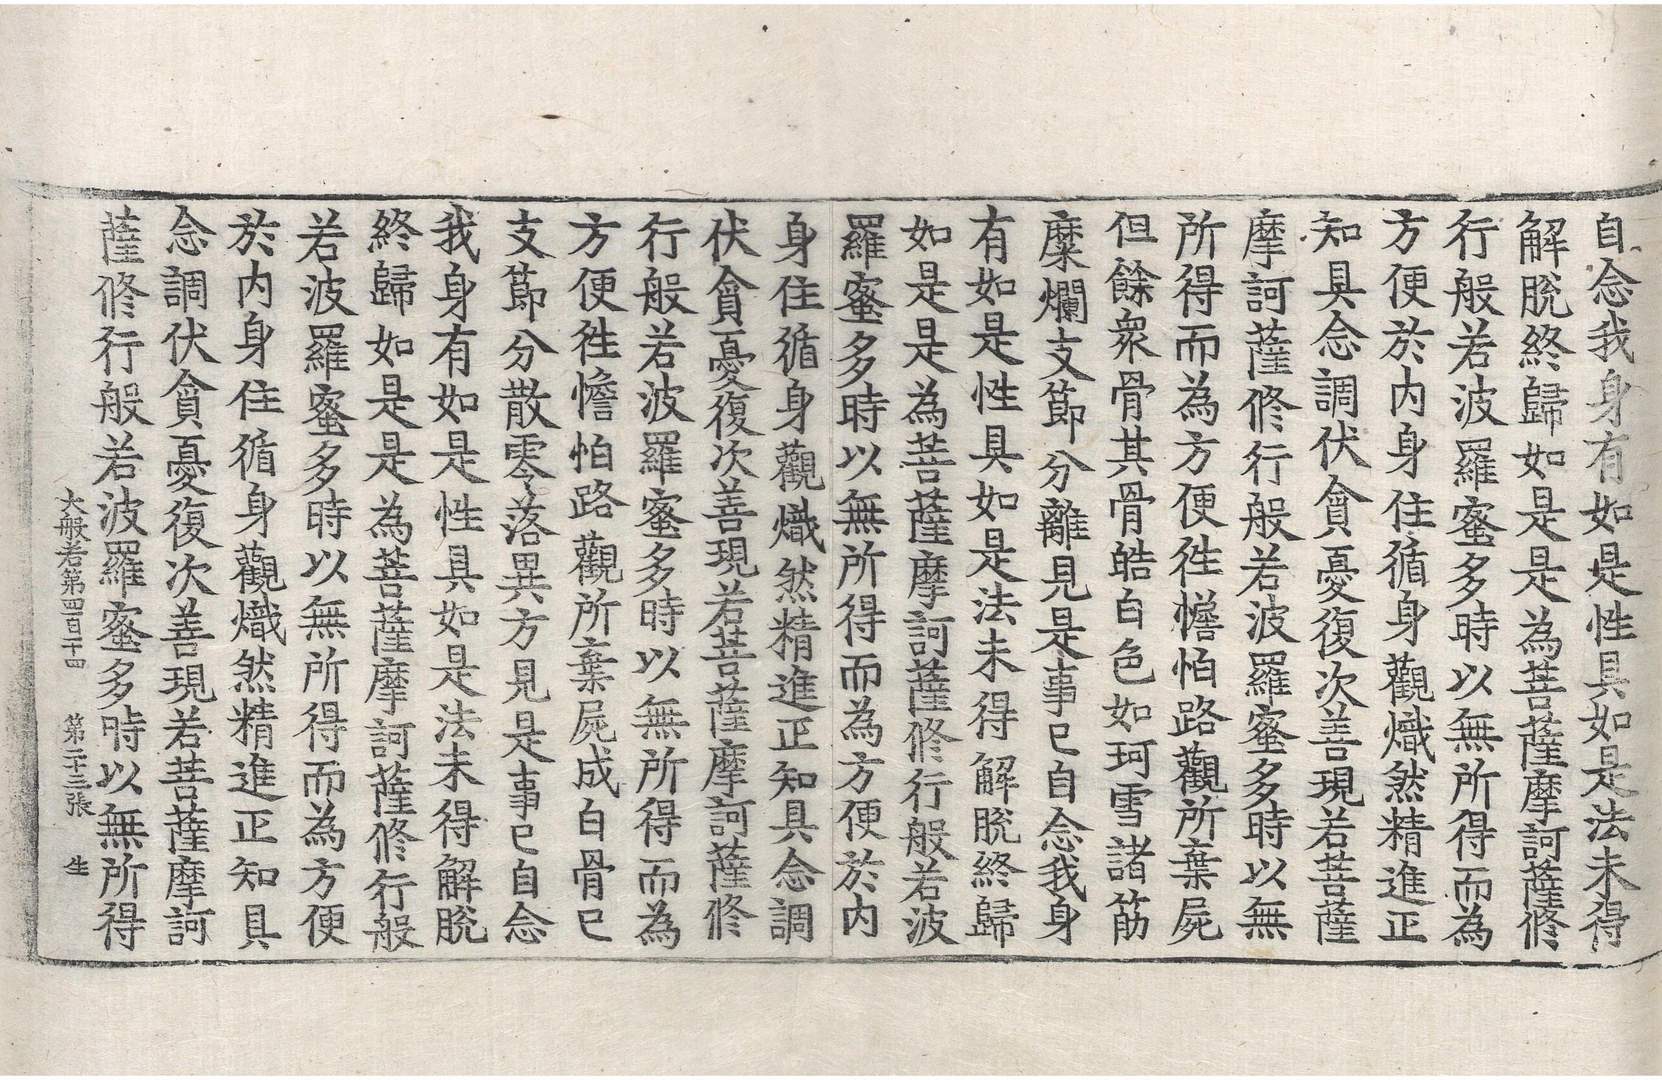 自念我身有如是性具如是法未得
解脫終歸如是是為菩薩摩訶薩修
行般若波羅蜜多時以無所得而為
方便於内身住循身觀熾然精進正
知具念調伏貪憂復次善現若菩薩
摩訶薩修行般若波羅蜜多時以無
所得而為方便往憺怕路觀所棄屍
但餘衆骨其骨皓白色如珂雪諸筋
糜爛支節分離見是事已自念我身
有如是性具如是法未得解脫終歸
如是是為菩薩摩訶薩修行般若波
羅蜜多時以無所得而為方便於内
身住循身觀熾然精進正知具念調
伏貪憂復次善現若菩薩摩訶薩修
行般若波羅蜜多時以無所得而為
方便往憺怕路觀所棄屍成白骨已
支節分散零落異方見是事已自念
我身有如是性具如是法未得解脫
終歸如是是為菩薩摩訶薩修行般
若波羅蜜多時以無所得而為方便
於内身住循身觀熾然精進正知具
念調伏貪憂復次善現若菩薩摩訶
薩修行般若波羅蜜多時以無所得
大般若第四百十四 第二十三張 生